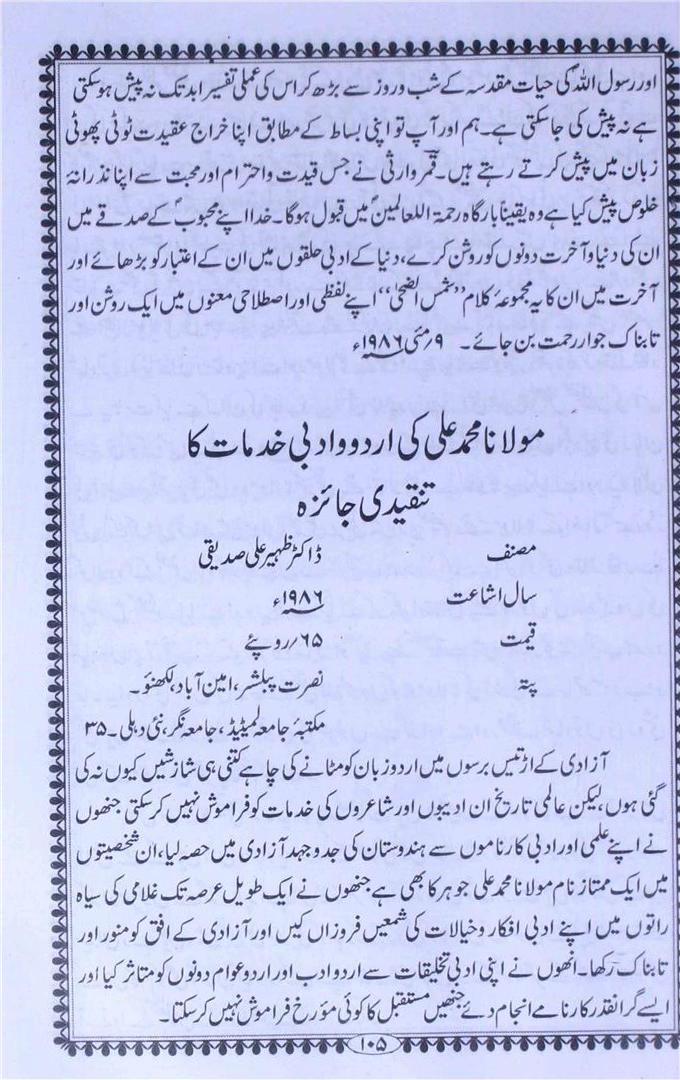 اور رسول اللہؐ کی حیات مقدسہ کے شب و روز سے بڑھ کر اس کی عملی تفسیر ابد تک نہ پیش ہو سکتی
ہے نہ پیش کی جا سکتی ہے۔ ہم اور آپ تو اپنی بساط کے مطابق اپنا خراج عقیدت ٹوٹی پھوٹی
زبان میں پیش کرتے رہتے ہیں۔ قمر وارثی نے جس قیدت و احترام اور محبت سے اپنا نذرانۂ
خلوص پیش کیا ہے وہ یقیناً بارگاہ رحمۃ اللعالمینؐ میں قبول ہوگا۔ خدا اپنے محبوبؐ کے صدقے میں
ان کی دنیا و آخرت دونوں کو روشن کرے، دنیا کے ادبی حلقوں میں ان کے اعتبار کو بڑھائے اور
آخرت میں ان کا یہ مجموعۂ کلام ”شمس الضحیٰ“ اپنے لفظی اور اصطلاحی معنوں میں ایک روشن اور
تابناک جوار رحمت بن جائے۔ ۹؍مئی ۱۹۸۶ء
مولانا محمد علی کی اردو و ادبی خدمات کا
تنقیدی جائزہ
مصنف ڈاکٹر ظہیر علی صدیقی
سال اشاعت ۱۹۸۶ء
قیمت ۶۵؍روپئے
پتہ نصرت پبلشر، امین آباد، لکھنؤ۔
مکتبۂ جامعہ لمیٹیڈ، جامعہ نگر، نئی دہلی۔ ۳۵
آزادی کے اڑتیس برسوں میں اردو زبان کو مٹانے کی چاہے کتنی ہی شازشیں کیوں نہ کی
گئی ہوں، لیکن عالمی تاریخ ان ادیبوں اور شاعروں کی خدمات کو فراموش نہیں کر سکتی جنھوں
نے اپنے علمی اور ادبی کارناموں سے ہندوستان کی جدوجہد آزادی میں حصہ لیا، ان شخصیتوں
میں ایک ممتاز نام مولانا محمد علی جوہر کا بھی ہے جنھوں نے ایک طویل عرصہ تک غلامی کی سیاہ
راتوں میں اپنے ادبی افکار و خیالات کی شمعیں فروزاں کیں اور آزادی کے افق کو منور اور
تابناک رکھا۔ انھوں نے اپنی ادبی تخلیقات سے اردو ادب اور اردو عوام دونوں کو متاثر کیا اور
ایسے گرانقدر کارنامے انجام دئے جنھیں مستقبل کا کوئی مؤرخ فراموش نہیں کر سکتا۔
۱۰۵